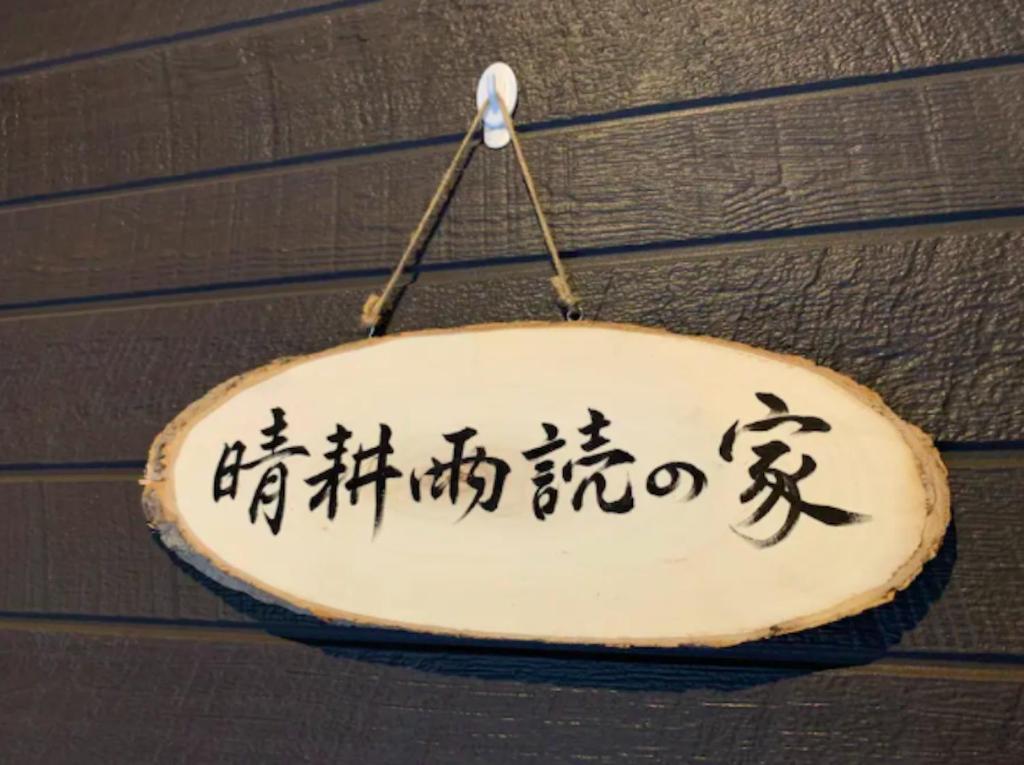 晴耕雨読の家